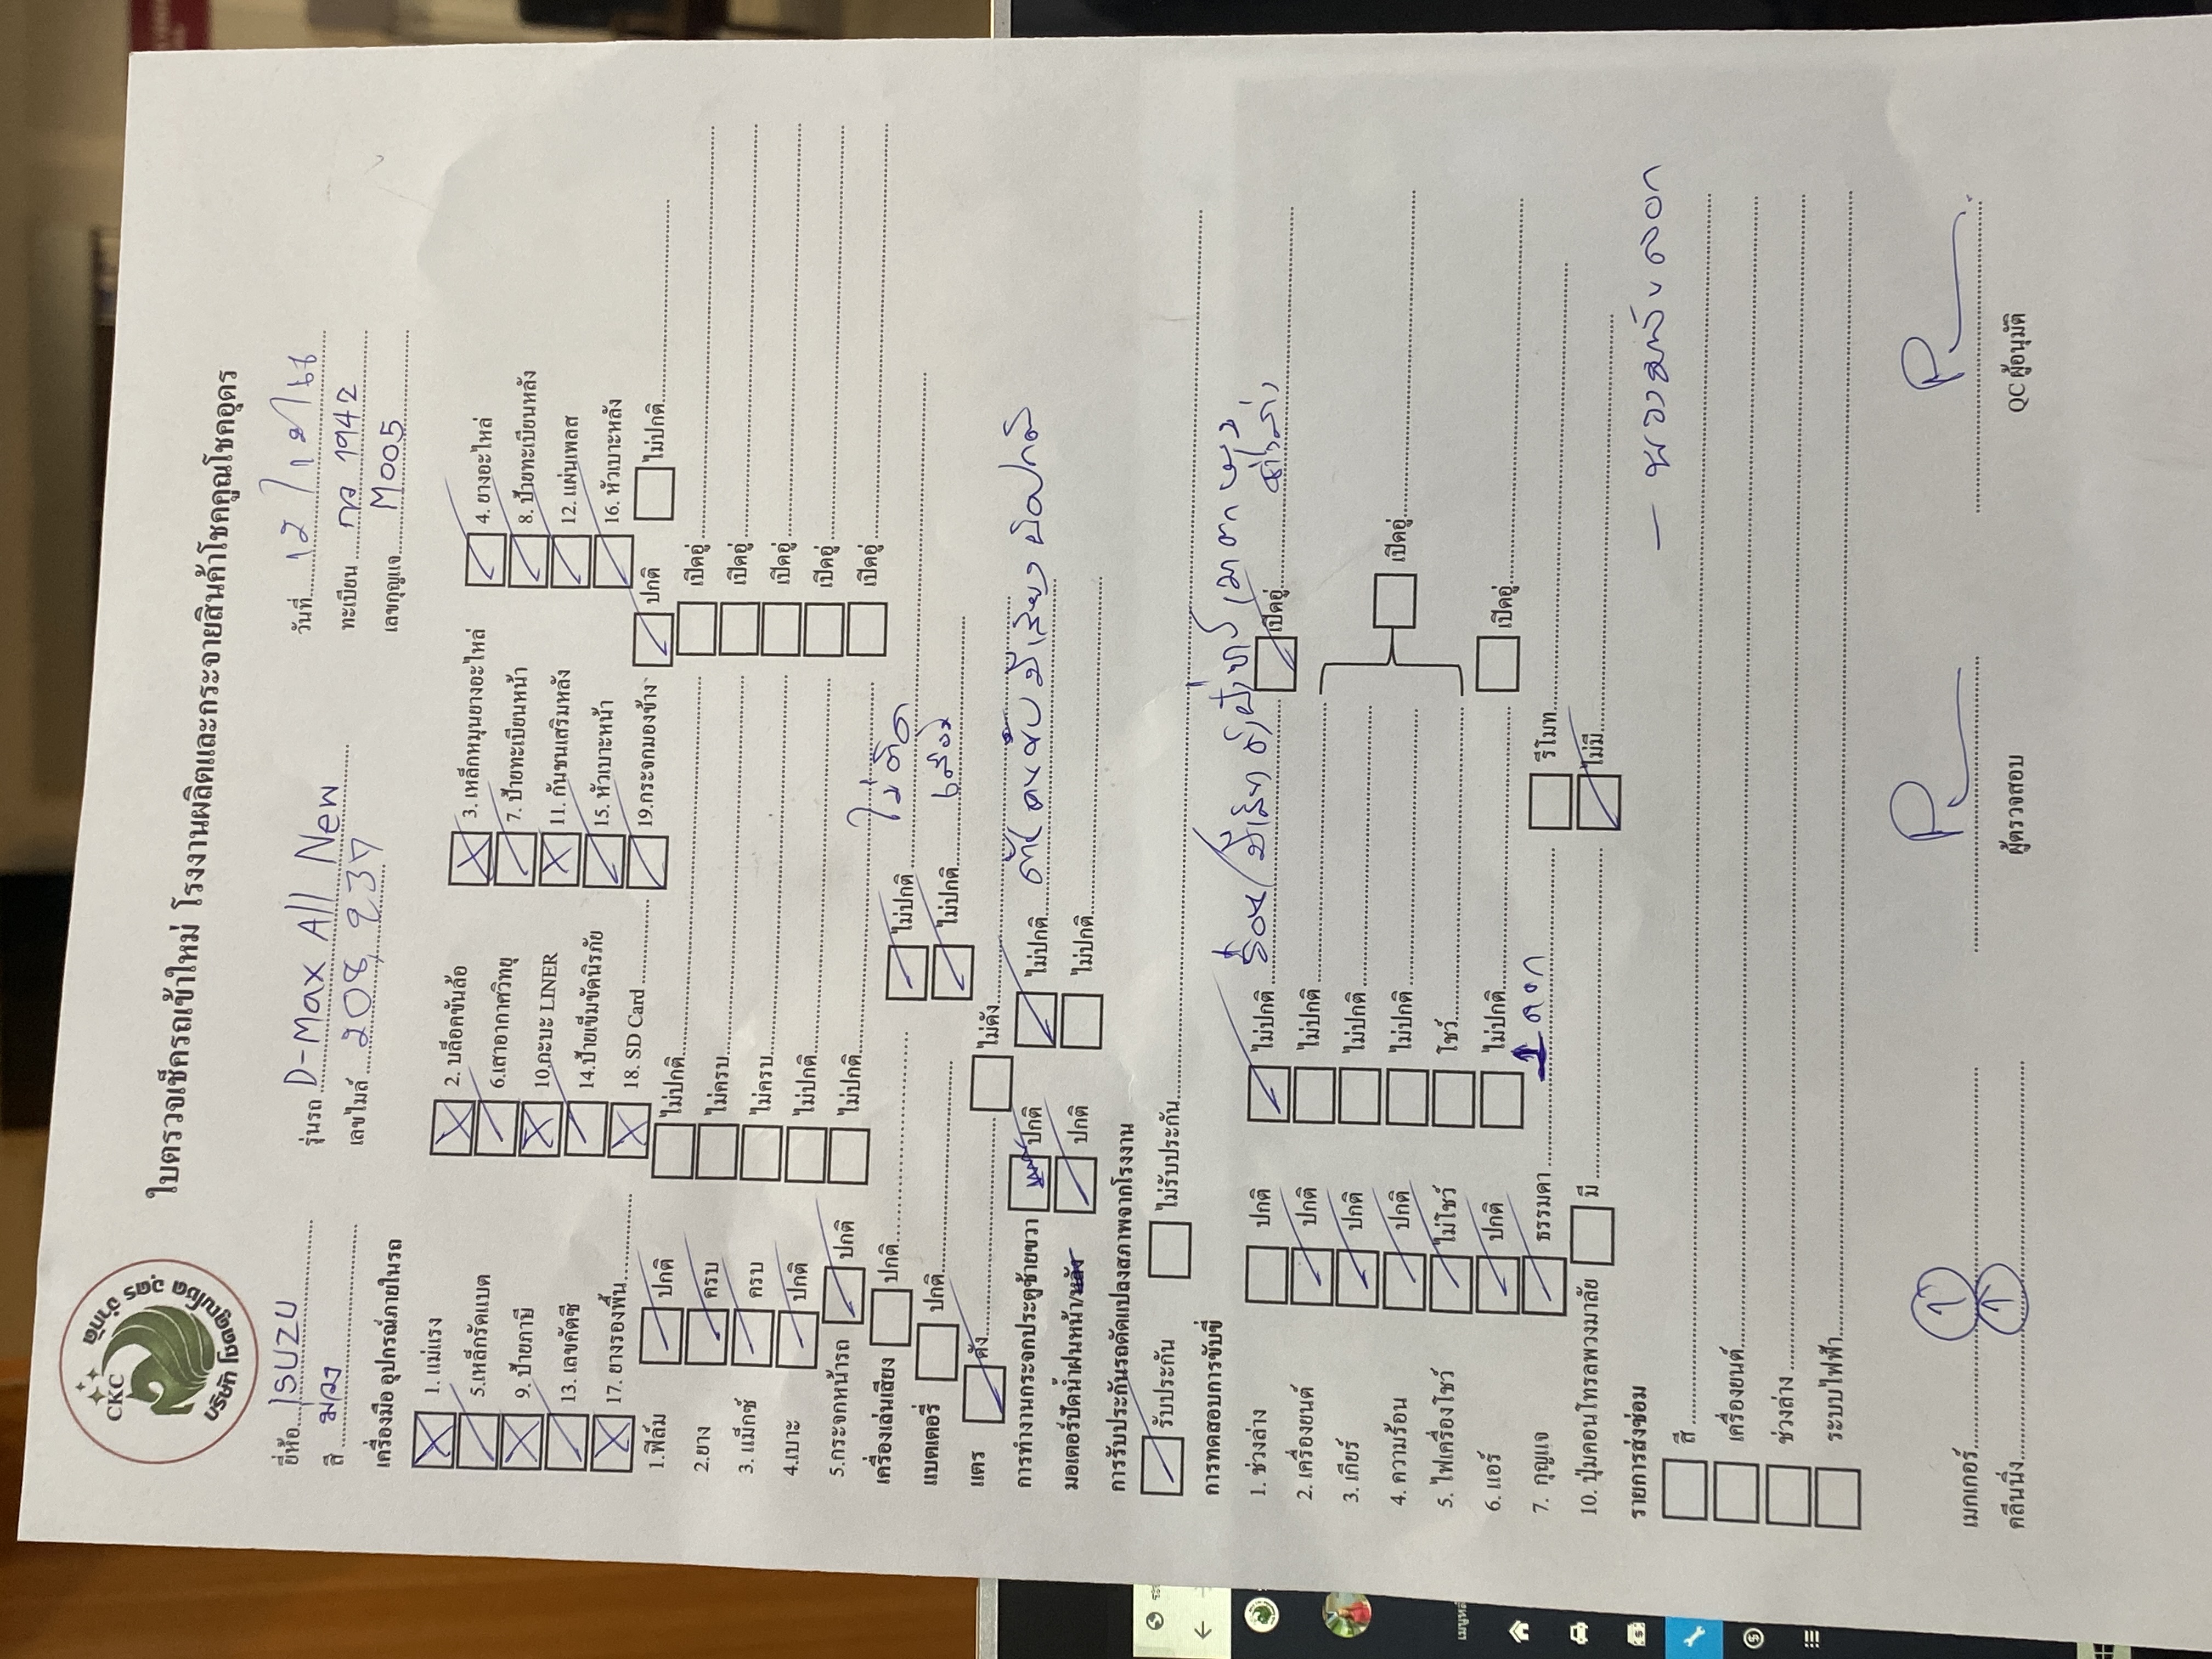 CKC
บริษัท โชคคูณโชค อุดร จำกัด
ใบตรวจเช็ครถเข้าใหม่ โรงงานผลิตและกระจายสินค้าโชคคูณโชคอุดร
ยี่ห้อ ISUZU รุ่นรถ D-Max All New วันที่ 12/1
สี ม่วง เลขไมล์ 208,937 ทะเบียน 1942
เลขกุญแจ M005
เครื่องมือ อุปกรณ์ภายในรถ
1. แม่แรง 2. บล็อคขันล้อ 3. เหล็กหมุนยางอะไหล่ 4. ยางอะไหล่
5.เหล็กรัดแบต 6.เสาอากาศวิทยุ 7. ป้ายทะเบียนหน้า 8. ป้ายทะเบียนหลัง
9. ป้ายภาษี 10.กะบะ LINER 11. กันชนเสริมหลัง 12. แผ่นเพลส
13. เลขคัตซี 14.ป้ายเข็มขัดนิรภัย 15. หัวเบาะหน้า 16. หัวเบาะหลัง
17. ยางรองพื้น 18. SD Card 19.กระจกมองข้าง ปกติ ไม่ปกติ
1.ฟิล์ม ปกติ ไม่ปกติ เปิดอู่
2.ยาง ครบ ไม่ครบ เปิดอู่
3. แม็กซ์ ครบ ไม่ครบ เปิดอู่
4.เบาะ ปกติ ไม่ปกติ เปิดอู่
5.กระจกหน้ารถ ปกติ ไม่ปกติ เปิดอู่
เครื่องเล่นเสียง ปกติ ไม่ปกติ ไม่ติด
แบตเตอรี่ ปกติ ไม่ปกติ เสื่อม
แตร ดัง ไม่ดัง
การทำงานกระจกประตูซ้ายขวา ปกติ ไม่ปกติ มีเสียง ผิดปกติ
มอเตอร์ปัดน้ำฝนหน้า/หลัง ปกติ ไม่ปกติ
การรับประกันรถดัดแปลงสภาพจากโรงงาน
รับประกัน ไม่รับประกัน
การทดสอบการขับขี่
1. ช่วงล่าง ปกติ ไม่ปกติ เปิดอู่
2. เครื่องยนต์ ปกติ ไม่ปกติ
3. เกียร์ ปกติ ไม่ปกติ
4. ความร้อน ปกติ ไม่ปกติ เปิดอู่
5. ไฟเครื่องโชว์ ไม่โชว์ โชว์
6. แอร์ ปกติ ไม่ปกติ เปิดอู่
7. กุญแจ ธรรมดา 1 ดอก รีโมท
10. ปุ่มคอนโทรลพวงมาลัย มี ไม่มี
รายการส่งซ่อม
- พวงมาลัยลอก
สี
เครื่องยนต์
ช่วงล่าง
ระบบไฟฟ้า
เมกเกอร์
คลีนนิ่ง ผู้ตรวจสอบ QC ผู้อนุมัติ